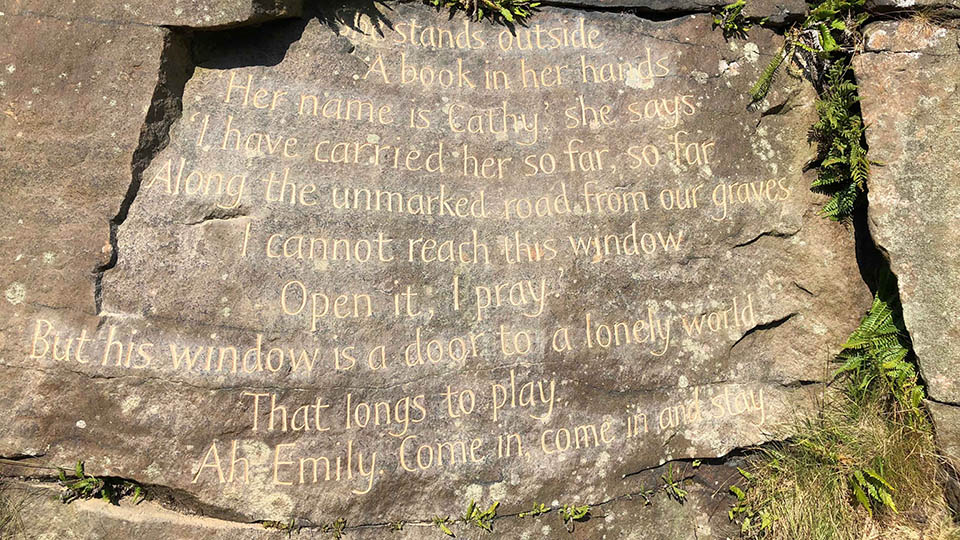 stands outside
A book in her hands
'Her name is Cathy,' she says
'I have carried her so far, so far
Along the unmarked road from our graves
I cannot reach this window
Open it, I pray.'
But his window is a door to a lonely world
That longs to play.
Ah Emily. Come in, come in and stay.